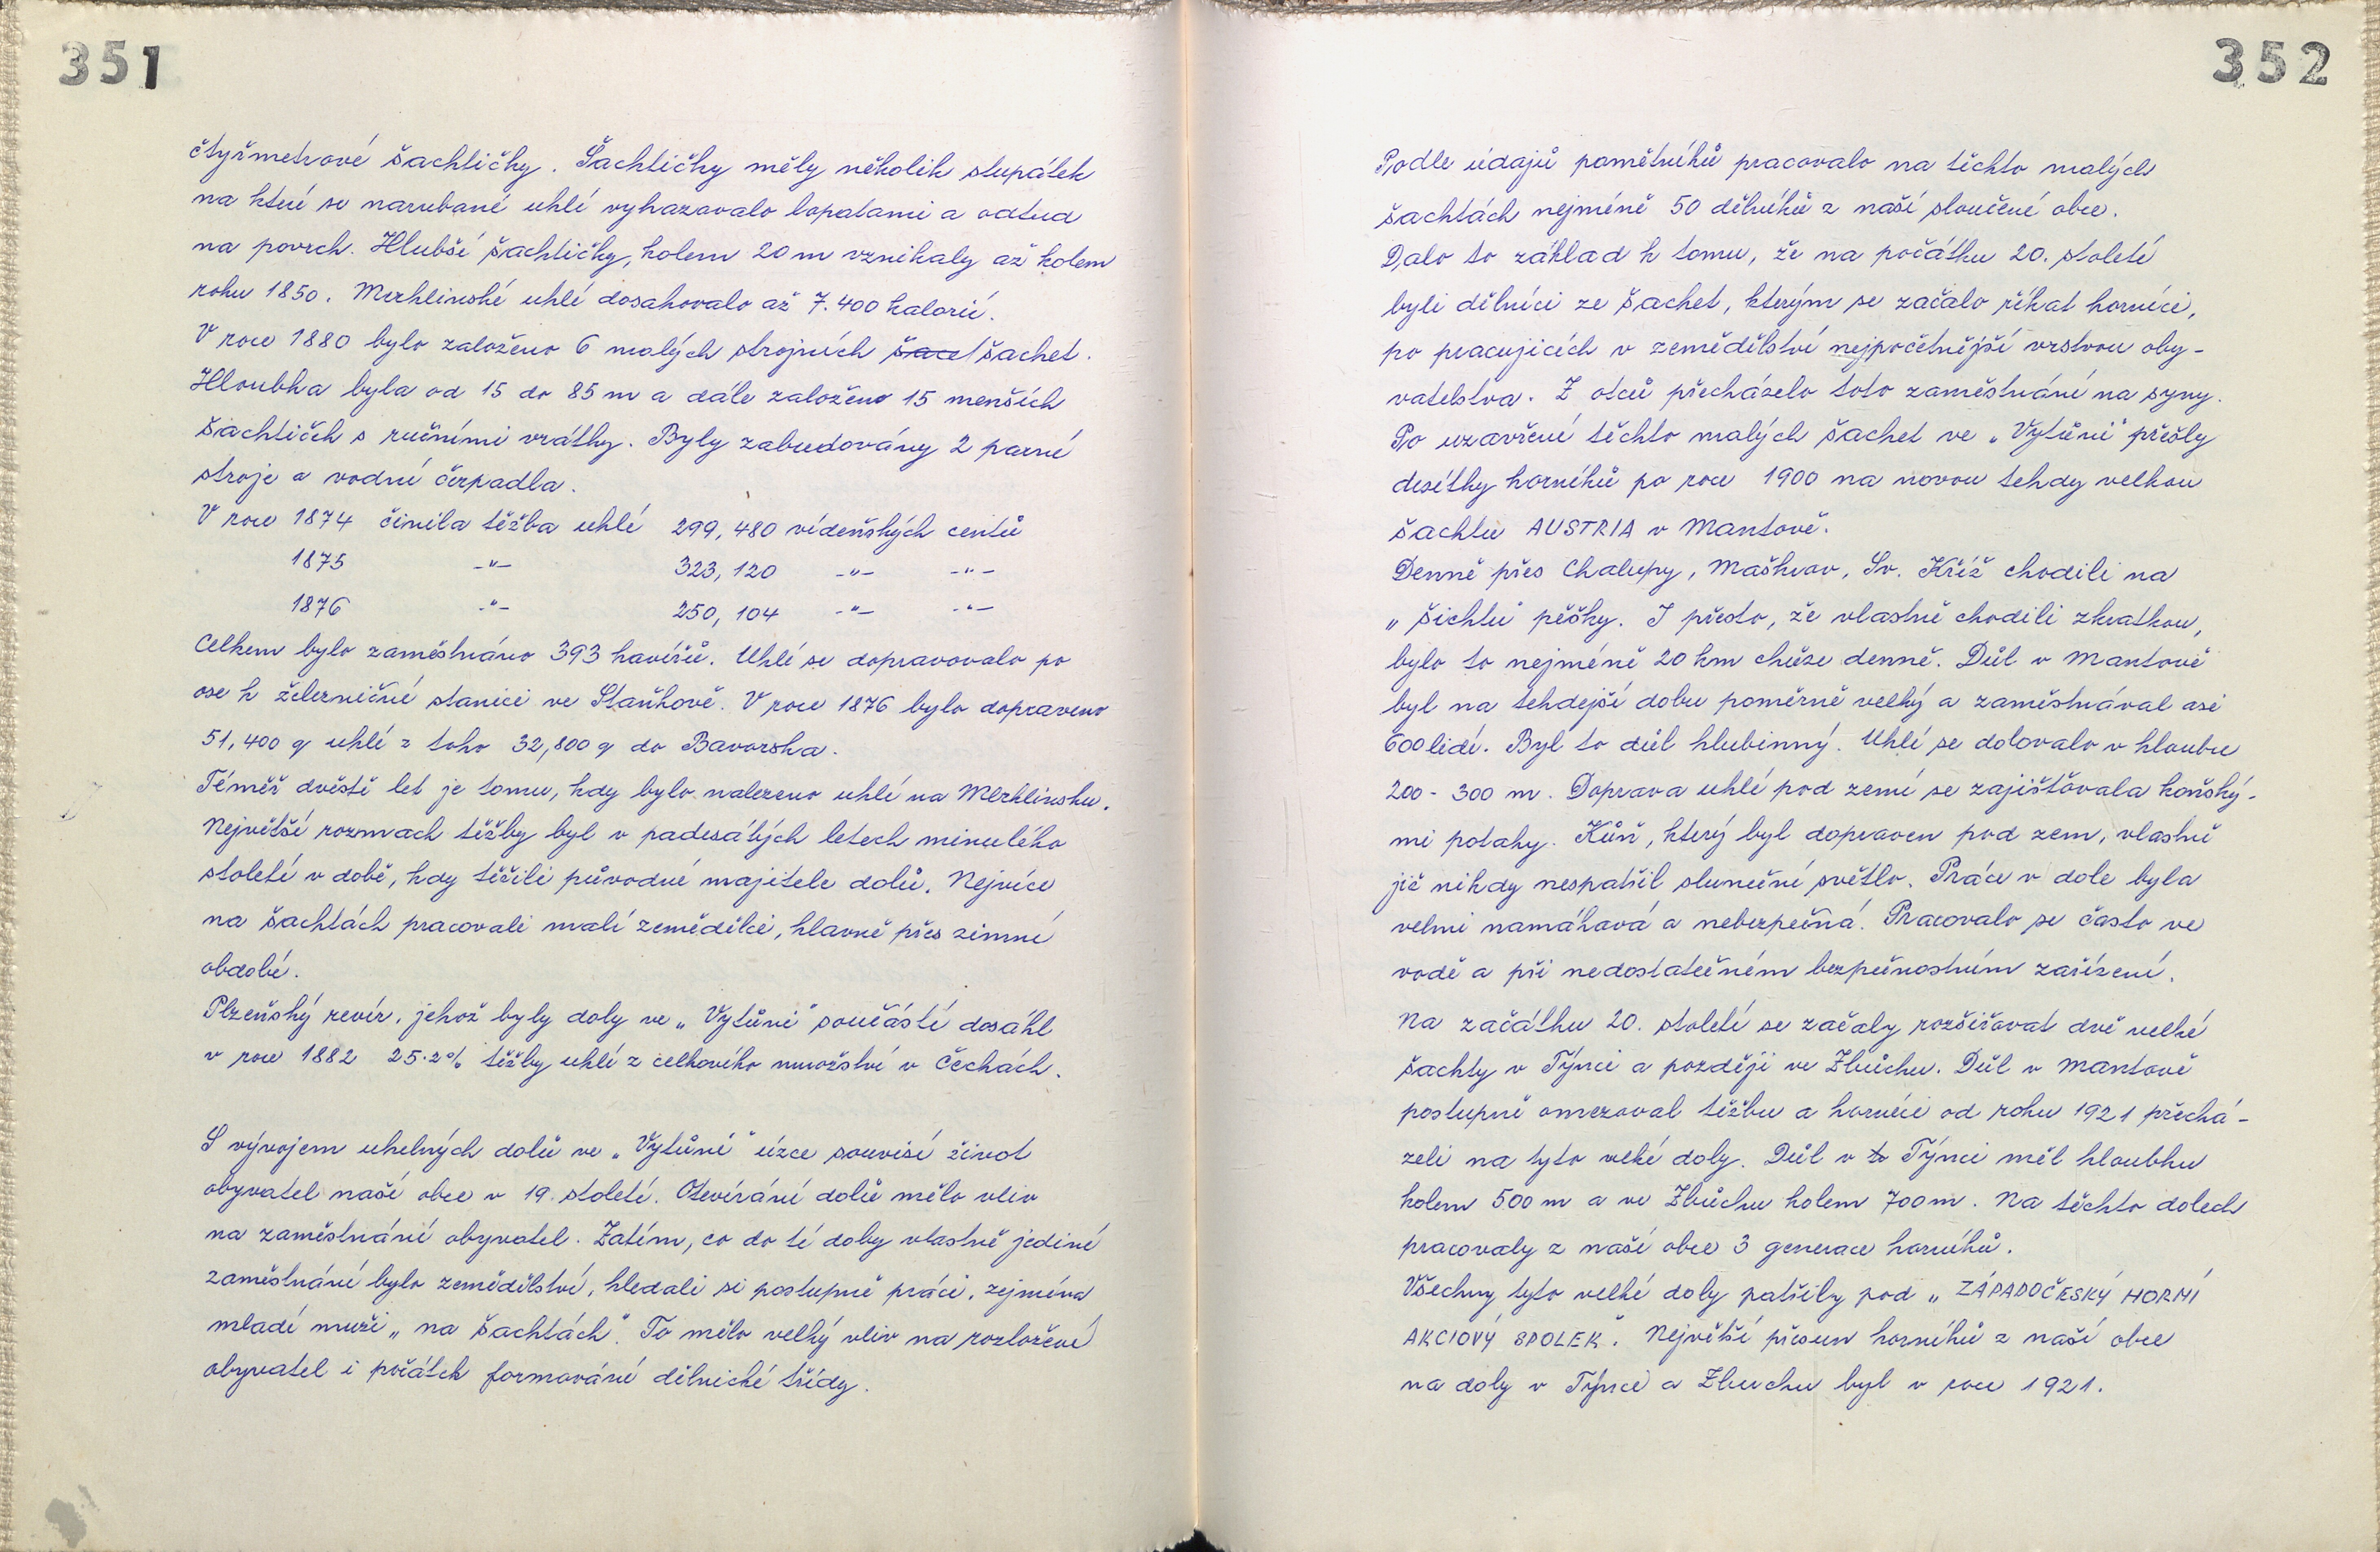 351
čtyřmetrové šachtičky. Šachtičky měly několik stupátek
na které se narubané uhlí vyhazovalo lopatami a odtud
na povrch. Hlubší šachtičky, kolem 20 m vznikaly až kolem
roku 1850. Merklinské uhlí dosahovalo až 7.400 kalorií.
V roce 1880 bylo založeno 6 malých strojních šact šachet.
Hloubka byla od 15 do 85 m a dále založeno 15 menších
šachtiček s ručními vrátky. Byly zabudovány 2 parní
stroje a vodní čerpadla.
V roce 1874 činila těžba uhlí 299,480 vídeňských centů
1875 -"- 323,120 -"- -"-
1876 -"- 250,104 -"- -"-
Celkem bylo zaměstnáno 393 havířů. Uhlí se dopravovalo po
ose k železniční stanici ve Staňkově. V roce 1876 bylo dopraveno
51,400 q uhlí z toho 32,800 q do Bavorska.
Téměř dvěstě let je tomu, kdy bylo nalezeno uhlí na Merklinsku.
Největší rozmach těžby byl v padesátých letech minulého
století v době, kdy těžili původní majitelé dolů. Nejvíce
na šachtách pracovali malí zemědělci, hlavně přes zimní
období.
Plzeňský revír, jehož byly doly ve „Vytůni" součástí dosáhl
v roce 1882 25.2% těžby uhlí z celkového množství v Čechách.
S vývojem uhelných dolů ve „Vytůni" úzce souvisí život
obyvatel naší obce v 19. století. Otevírání dolů mělo vliv
na zaměstnání obyvatel. Zatím, co do té doby vlastně jediné
zaměstnání bylo zemědělství, hledali si postupně práci, zejména
mladí muži „na šachtách". To mělo velký vliv na rozložení
obyvatel i počátek formování dělnické třídy.
352
Podle údajů pamětníků pracovalo na těchto malých
šachtách nejméně 50 dělníků z naší sloučené obce.
Dalo to základ k tomu, že na počátku 20. století
byli dělníci ze šachet, kterým se začalo říkat horníci,
po pracujících v zemědělství nejpočetnější vrstvou oby-
vatelstva. Z otců přecházelo toto zaměstnání na syny.
Po uzavření těchto malých šachet ve „Vytůni" přešly
desítky horníků po roce 1900 na novou tehdy velkou
šachtu AUSTRIA v Mantově.
Denně přes Chalupy, Maškrov, Sv. Kříž chodili na
„šichtu" pěšky. I přesto, že vlastně chodili zkratkou,
bylo to nejméně 20 km chůze denně. Důl v Mantově
byl na tehdejší dobu poměrně velký a zaměstnával asi
600 lidí. Byl to důl hlubinný. Uhlí se dolovalo v hloubce
200 - 300 m. Doprava uhlí pod zemí se zajišťovala koňský-
mi potahy. Kůň, který byl dopraven pod zem, vlastně
již nikdy nespatřil sluneční světlo. Práce v dole byla
velmi namáhavá a nebezpečná. Pracovalo se často ve
vodě a při nedostatečném bezpečnostním zařízení.
Na začátku 20. století se začaly rozšiřovat dvě velké
šachty v Týnci a později ve Zbůchu. Důl v Mantově
postupně omezoval těžbu a horníci od roku 1921 přechá-
zeli na tyto velké doly. Důl v to Týnci měl hloubku
kolem 500 m a ve Zbůchu kolem 700 m. Na těchto dolech
pracovaly z naší obce 3 generace horníků.
Všechny tyto velké doly patřily pod „ZÁPADOČESKÝ HORNÍ
AKCIOVÝ SPOLEK". Největší přesun horníků z naší obce
na doly v Týnci a Zbuchu byl v roce 1921.